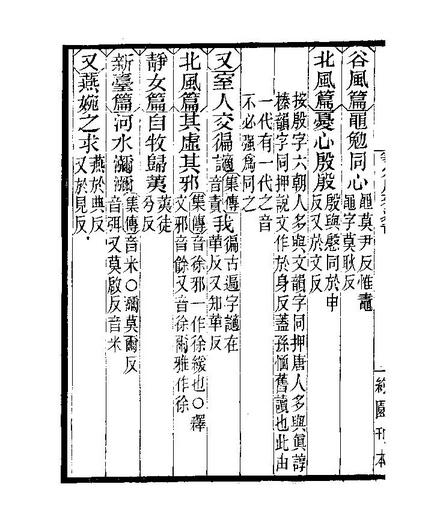 園刊本
谷風篇黽勉同心
黽莫尹反惟鼃
黽字莫耿反
北風篇憂心殷殷
殷與慇同於申
反又於文反
按殷字六朝人多與文韻字同押唐人多與眞諄
榛韻字同押說文作於身反蓋孫愐舊讀也此由
一代有一代之音
不必强爲同之
又室人交徧讁
集傳
音責
我
徧古遍字讁在
華反又知華反
北風篇其虛其邪
集傳音徐邪一作徐緩也○釋
文邪音餘又音徐爾雅作徐
靜女篇自牧歸荑
荑徒
兮反
新臺篇河水瀰瀰
集傳音米○瀰莫爾反
音弭又莫啟反音米
又燕婉之求
燕於典反
又於見反